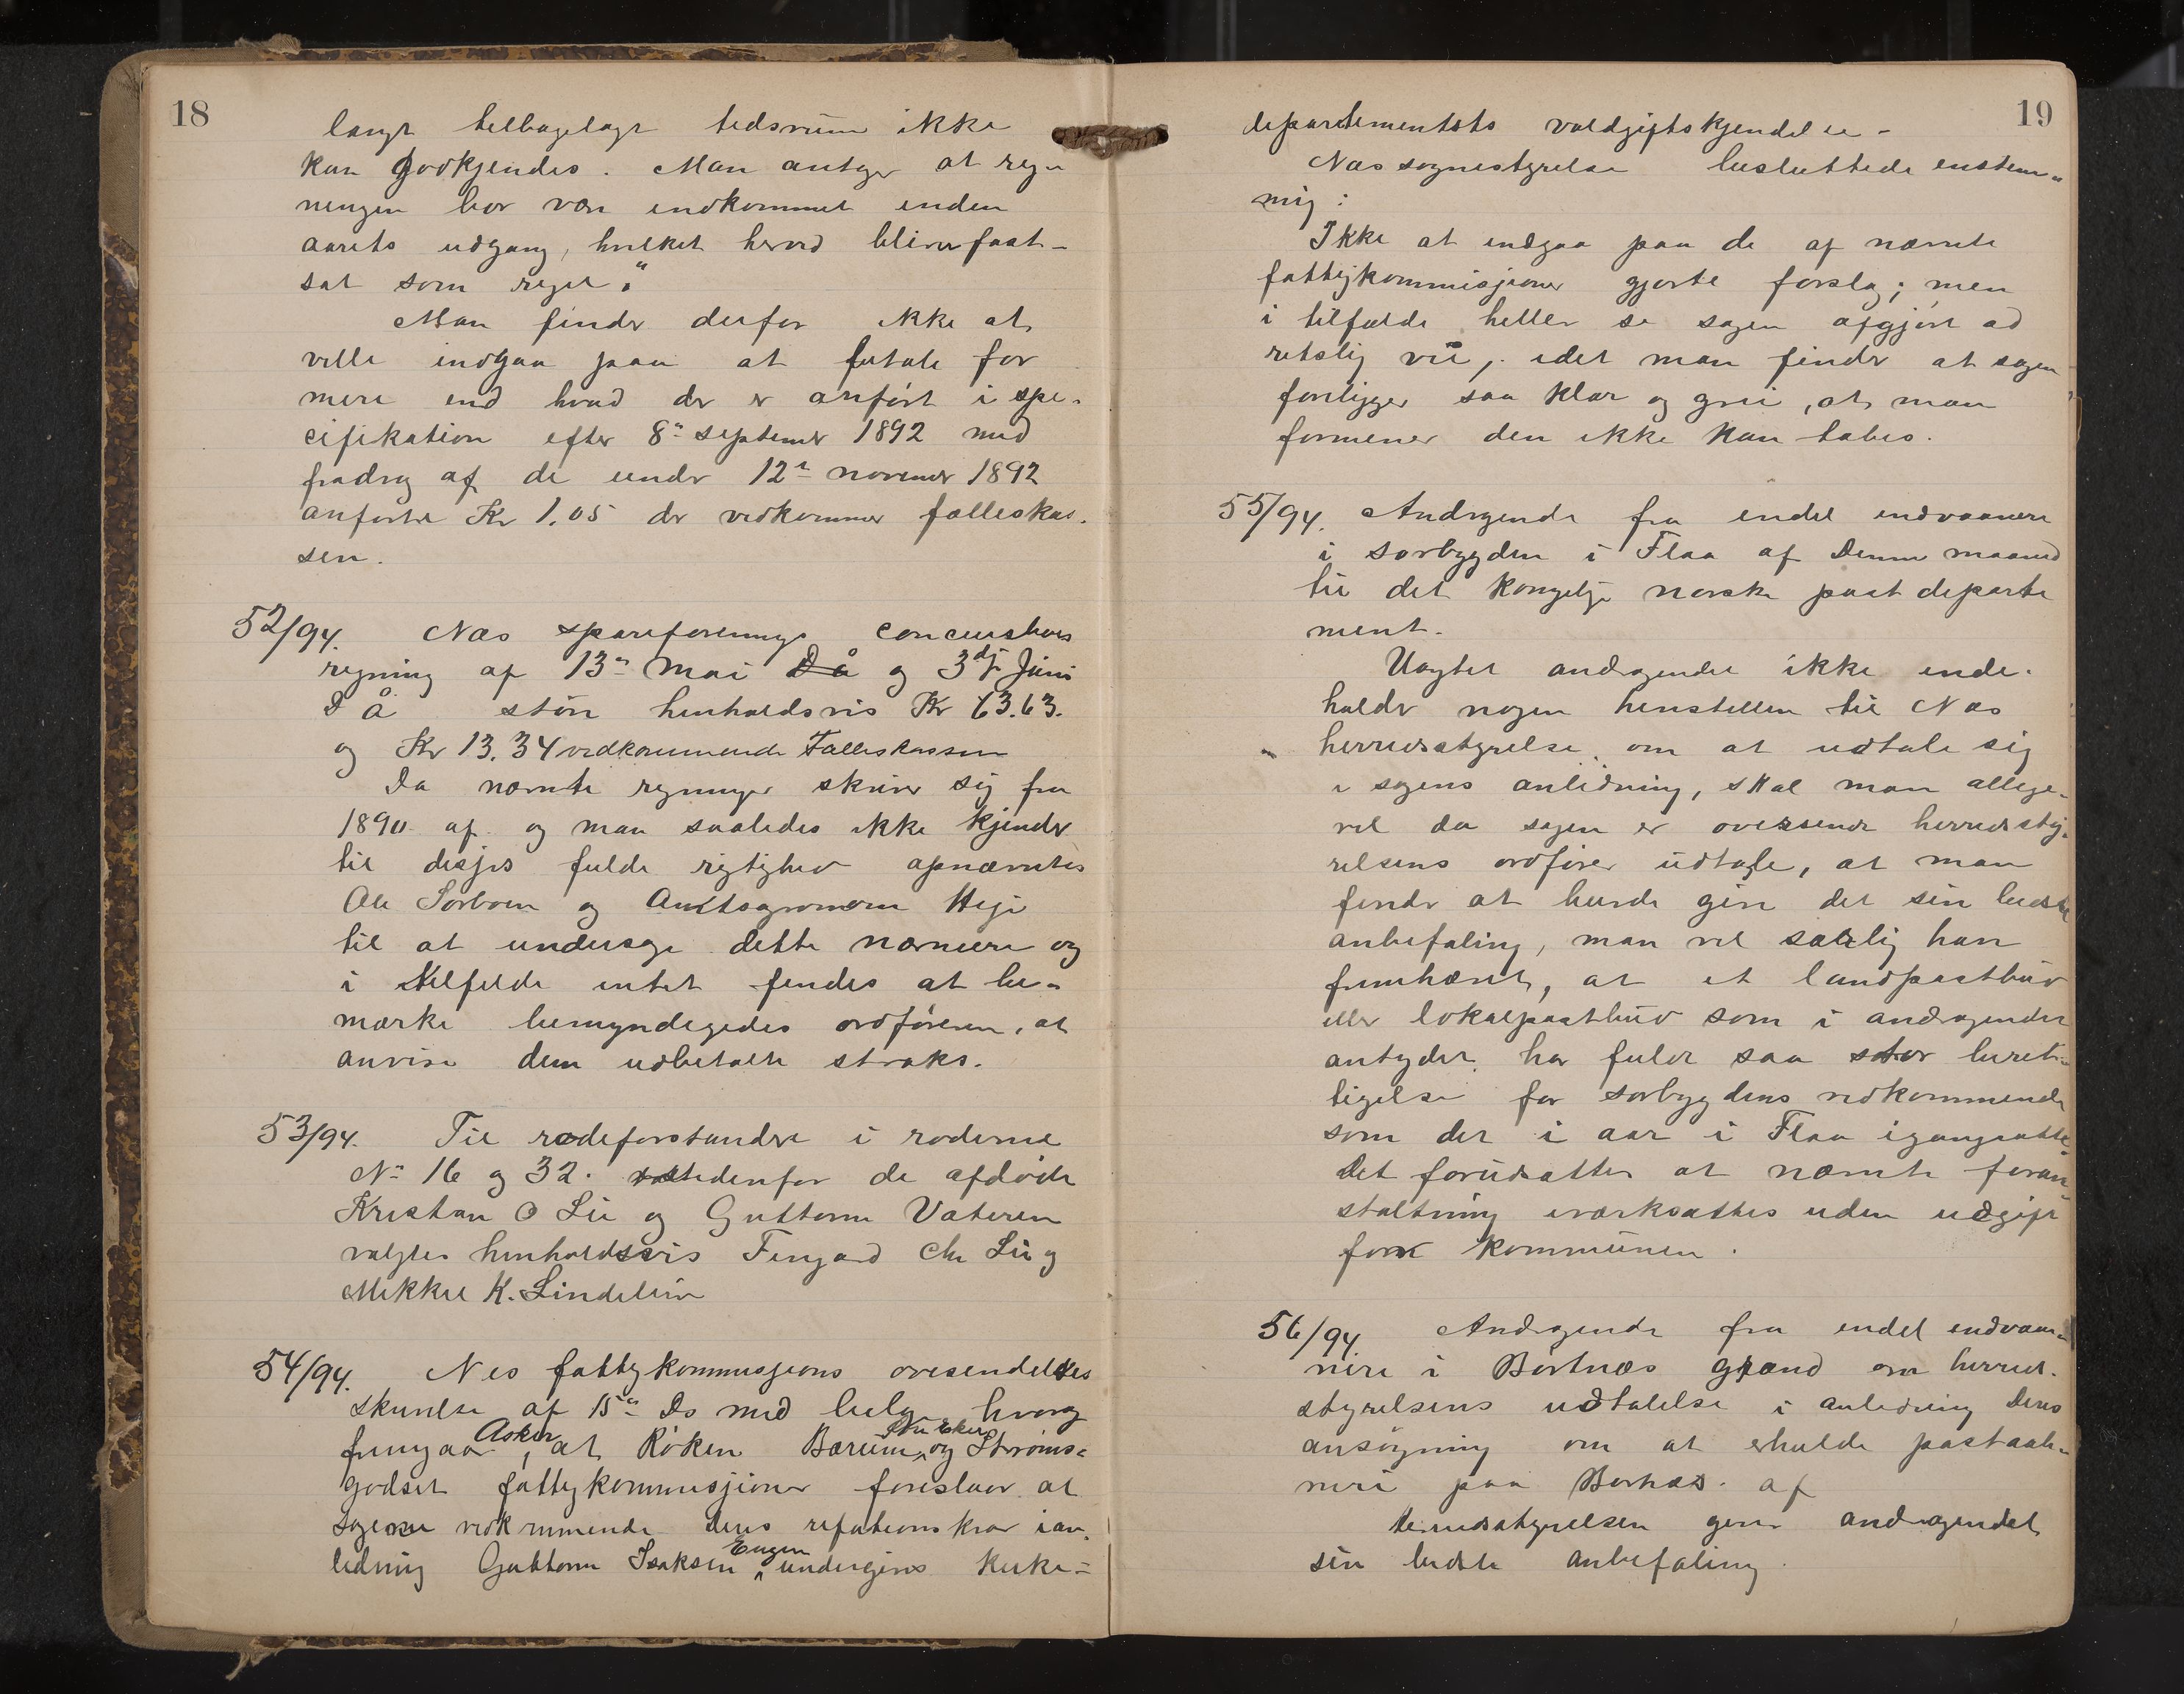 18
langt tilbagelagt tidsrum ikke
kan godkjendes. Man antager at reg-
ningen bør være indkommet inden
aarets udgang, hvilket herved bliver fast-
sat som regel."
Man finder derfor ikke at
ville indgaa paa at betale for
mere end hvad der er anført i spe-
cifikation efter 8de september 1892 med
fradrag af de under 12te november 1892
anførte Kr 1.05 der vedkommer fælleskas-
sen.
52/94. Næs spareforenings
regning af 13de Mai D å og 3dje Juni
D å stor henholdsvis Kr 63.63.
og Kr 13.34 vedkommende Fælleskassen
Da nævnte regninger skriver sig fra
1890 af og man saaledes ikke kjender
til disses fulde rigtighed opnævntes
Ole Sorbøen og Amtsagronom Heje
til at undersøge dette nærmere og
i tilfælde intet findes at be-
mærke bemyndigedes ordføreren, at
anvise dem udbetalte straks.
53/94. Til rodeforstandere i roderne
No 16 og 32. istedenfor de afdøde
Kristian O Lie og Guttorm Vateren
valgtes henholdsvis Fingard Chr Lie og
Mikkel K. Lindelien
54/94. Nes fattigkommissjons oversendelses
skrivelse af 15de Ds med bilag hvorog
fremgaar Asker, at Røken Bærum, og Strøms-
godset fattigkommissjoner foreslaar at
sagerne vedkommende deres refutionskrav i an-
ledning Guttorm Isaksen Eugen undergives Kirke-
19
departementets voldgiftskjendelse -
Næs sognestyrelse besluttede enstem-
mig:
Ikke at indgaa paa de af nævnte
fattigkommisjoner gjorte forslag; men
i tilfælde heller se sagen afgjort ad
retslig vei, idet man finder at sagen
foreligger saa klar og grei, at man
formener den ikke kan tabes.
55/94. Andragende fra endel indvaanere
i sørbygden i Flaa af denne maaned
til det kongelige norske post departe
ment.
Uagtet andragendet ikke inde-
holder nogen henstillen til Næs
herredsstyrelse om at udtale sig
i sagens anledning, skal man allige-
vel da sagen er oversendt herredssty-
relsens ordfører udtale, at man
finder at burde give det sin bedste
anbefaling, man vel særlig have
fremhævet, at et landpostbud
eller lokalpostbud som i andragendet
antydet, har fuldt saa stor beret-
tigelse for sørbygdens vedkommende
som det i aar i Flaa igangsatte
Det forudsættes at nævnte foran-
staltning iværksættes uden udgift
for kommunen.
56/94 Andragende fra endel indvaa-
nere i Børtnæs grænd om herred-
styrelsens udtalelse i anledning deres
ansøgning om at erholde postaab-
neri paa Bortnæs. af
Herredsstyrelsen giver andragendet
sin bedste anbefaling.